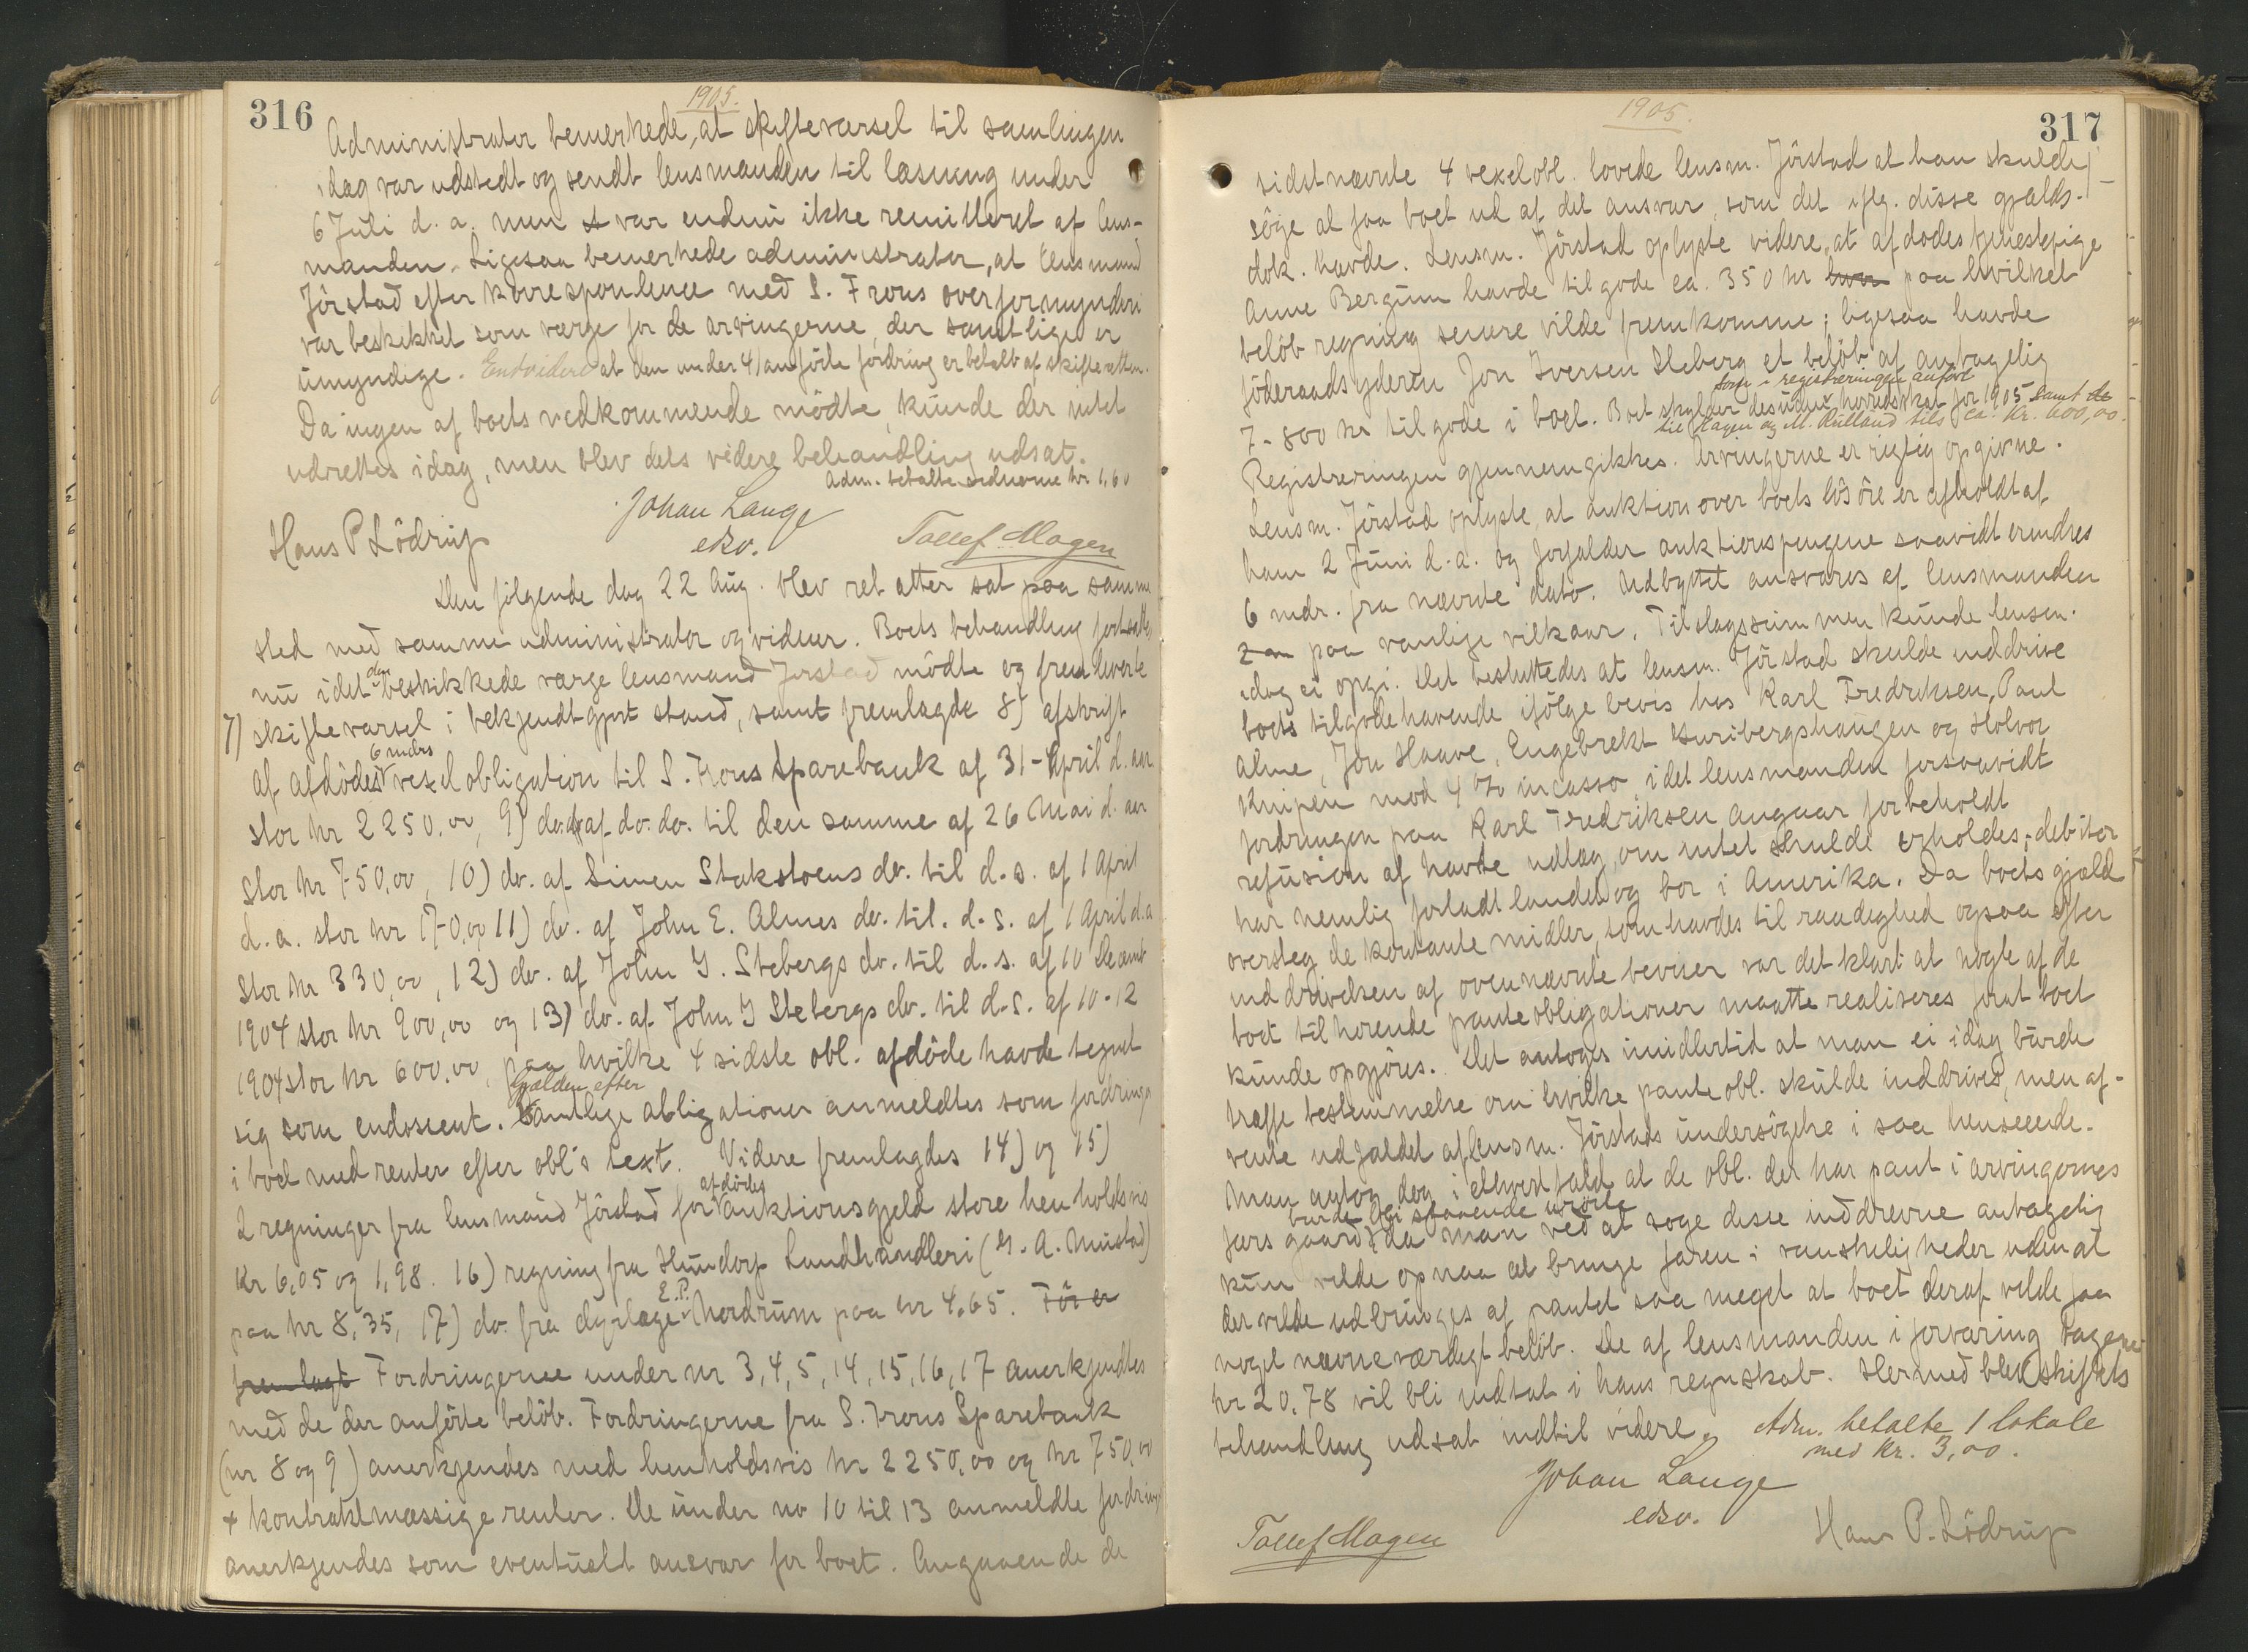 316
1905.
Administrator bemerkede, at skiftevarsel til samlingen
idag var udstedt og sendt lensmanden til læsning under
6 Juli d. a. men var endnu ikke remitteret af lens-
manden. Ligesaa bemerkede administrator, at lensmand
Jörstad efter korrespondence med S. Frons overformynderi
var beskikket som værge for de arvingerne, der samtlige er
umyndige. Endvidere at den under 4) anförte fordring er betalt af skifteretten.
Da ingen af boets vedkommende mödte, kunde der intet
udrettes idag, men blev dets videre behandling udsat.
Adm. betalte vidnerne kr 1,60
Johan Lange
edsv.
Hans P Lödrup
Tollef Hagen
Den fölgende dag 22 Aug. blev ret atter sat paa samme
sted med samme administrator og vidner. Boets behandling fortsattes
nu idet den beskikkede værge lensmand Jörstad mödte og fremleverte
7) skiftevarsel i bekjendtgjort stand, samt fremlagde 8) afskrift
af afdödes 6 mdrs vexelobligation til S. Frons Sparebank af 31-April d. aar
stor kr 2250.00, 9) do. af do. do. til den samme af 26 Mai d. aar
stor kr 750,00, 10) do. af Simen Stakstoens do. til d. s. af 1 April
d. a. stor kr 170,00 11) do. af John E. Almes do. til. d. s. af 1 April d. a
stor kr 330,00, 12) do. af John I. Stebergs do. til d. s. af 10 Decemb
1904 stor kr 900,00 og 13) do. af John I Stebergs do. til d. s. af 10-12
1904 stor kr 600.00, paa hvilke 4 sidste obl. afdöde havde tegnet
sig som endossent. Gjælden efter samtlige obligationer anmeldtes som fordringer
i boet med renter efter obl's text. Videre fremlagdes 14) og 15)
2 regninger fra lensmand Jörstad for afdödes auktionsgjeld store henholdsvis
Kr 6,05 og 1,98. 16) regning fra Hundorp Landhandleri (G. A. Mustad)
paa kr 8,35, 17) do. fra dyrlæge E. P. Nordrum paa kr 4,65. För er
fremlagt Fordringerne under nr 3, 4, 5, 14, 15, 16, 17 anerkjendtes
med de der anförte belöb. Fordringerne fra S. Frons Sparebank
(nr 8 og 9) anerkjendes med henholdsvis kr 2250,00 og kr 750,00
+ kontraktmæssige renter. De under no 10 til 13 anmeldte fordring
anerkjendes som eventuelt ansvar for boet. Angaaende de
1905.
317
sidstnævnte 4 vexelobl. lovede lensm. Jörstad at han skulde
söge at faa boet ud af det ansvar, som det iflg. disse gjælds-
dok. havde. Lensm. Jörstad oplyste videre, at afdödes tjenestepige
Anne Bergum havde tilgode ca. 350 kr paa hvilket
belöb regning senere vilde fremkomme; ligesaa havde
föderaadsyderen Jon Iversen Steberg et belöb af antagelig
7-800 kr tilgode i boet. Boet skylder desuden som i registreringen anfört herredsskat for 1905 samt de
til Hagen og M. Rulland tils. ca. Kr. 600,00.
Registreringen gjennemgikkes. Arvingerne er rigtig opgivne.
Lensm. Jörstad oplyste, at auktion over boets lösöre er afholdt af
ham 2 Juni d. a. og forfalder auktionspengene saavidt erindres
6 mdr. fra nævnte dato. Udbyttet ansvares af lensmanden
paa vanlige vilkaar. Tilslagssummen kunde lensm.
idag ei opgi. Det besluttedes at lensm. Jörstad skulde inddrive
boets tilgodehavende ifölge bevis hos Karl Fredriksen, Paul
Alme, Jon Haave, Engebrekt Kuribergshaugen og Halvor
Knipen mod 4 % incasso, idet lensmanden forsaavidt
fordringen paa Karl Fredriksen angaar forbeholdt
refusion af havte udlæg, om intet skulde erholdes; debitor
har nemlig forladt landet og bor i Amerika. Da boets gjæld
oversteg de kontante midler, som havdes til raadighed ogsaa efter
inddrivelsen af ovennævnte beviser var det klart at nogle af de
boet tilhörende panteobligationer maatte realiseres forat boet
kunde opgjöres. Det antoges imidlertid at man ei idag burde
træffe bestemmelse om hvilke panteobl. skulde inddrives, men af-
vente udfaldet af lensm. Jörstads undersögelse i saa henseende.
Man antog dog i ethvert fald at de obl. der har pant i arvingernes
fars gaard burde bli staaende urörte da man ved at söge disse inddrevne antagelig
kun vilde opnaa at bringe faren i vanskeligheder uden at
der vilde udbringes af pantet saa meget at boet deraf vilde faa
noget nævneværdigt belöb. De af lensmanden i forvaring tagne
kr 20.78 vil bli indtat i hans regnskab. Hermed blev skiftets
behandling udsat indtil videre. Adm. betalte 1 lokale
med Kr. 3,00.
Johan Lange
edsv.
Tollef Hagen
Hans P. Lödrup